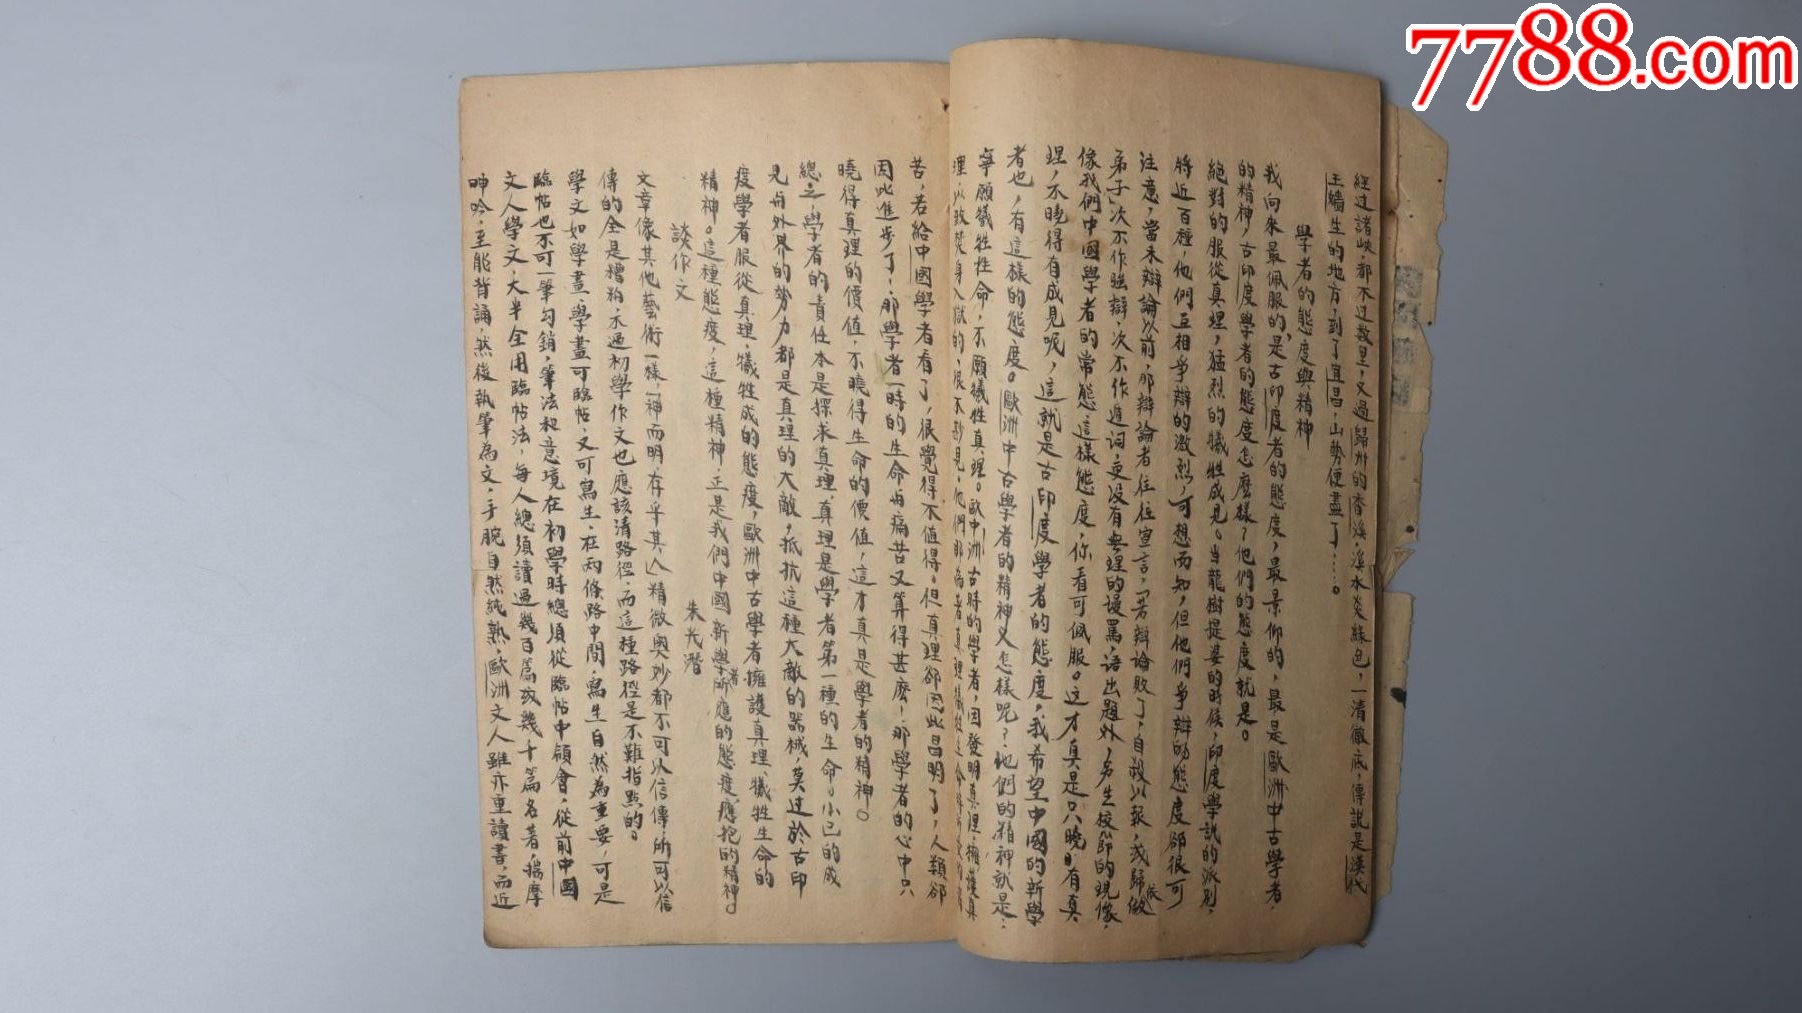 7788.com
經过諸峽，都不过数里，又過歸州的香溪，溪水炎綠色，一清徹底，傳說是漢代
王嬙生的地方，到了宜昌，山勢便盡了……。
學者的態度與精神
我向來最佩服的，是古印度者的態度，最景仰的，最是歐洲中古學者，
的精神，古印度學者的態度怎麽樣？他們的態度就是。
絕對的服從真理，猛烈的犧牲成見。当龍樹提婆的時候，印度學説的派别，
將近百種，他們互相爭辯的激烈，可想而知，但他們爭辯的態度郤很可
注意，當未辯論以前，那辯論者往往宣言，「若辯論敗了，自殺以報，或歸依做
弟子」次不作強辯，次不作遁詞，更没有無理的谩罵，语出題外，另生枝節的現像，
像我們中國學者的常態，這樣態度，你看可佩服。这才真是只曉有真
理，不曉得有成見呢，這就是古印度學者的態度，我希望中國的新學
者也，有這樣的態度。歐洲中古學者的精神又怎樣呢？他們的精神就是，
寧願犧牲性命，不願犧牲真理。欧中洲古時的學者，因發明真理，擁護真
理，以致焚身入獄的，很不
苦，若給中國學者看了，很覺得不值得。但真理卻因此昌明了，人類卻
因此進步了！那學者一時的生命与痛苦又算得甚麽，那學者的心中只
曉得真理的價值，不曉得生命的價值，這才真是學者的精神。
總之，學者的責任本是探求真理，真理是學者第一種的生命。小己的成
見与外界的勢力都是真理的大敵，抵抗這種大敵的器械，莫过於古印
度學者服從真理，犧牲成的態度，歐洲中古學者擁護真理、犧牲生命的
精神。這種態度，這種精神，正是我們中國新學者所應的態度，應抱的精神。
談作文
朱光潛
文章像其他藝術一樣，「神而明，存乎其人」精微奥妙都不可以信傳，所可以信
傳的全是糟粕，不過初學作文也應該清路徑，而這種路徑是不難指點的。
學文如學畫，學畫可臨帖，又可寫生，在两條路中間，寫生自然為重要，可是
臨帖也不可一筆勾銷，筆法和意境在初學時總須從臨帖中領會，從前中國
文人學文，大半全用臨帖法，每人總須讀過幾百篇或幾十篇名著，揣摩
呻吟，至能背誦，然後執筆為文，手腕自然純熟，歐洲文人雖亦重讀書，而近